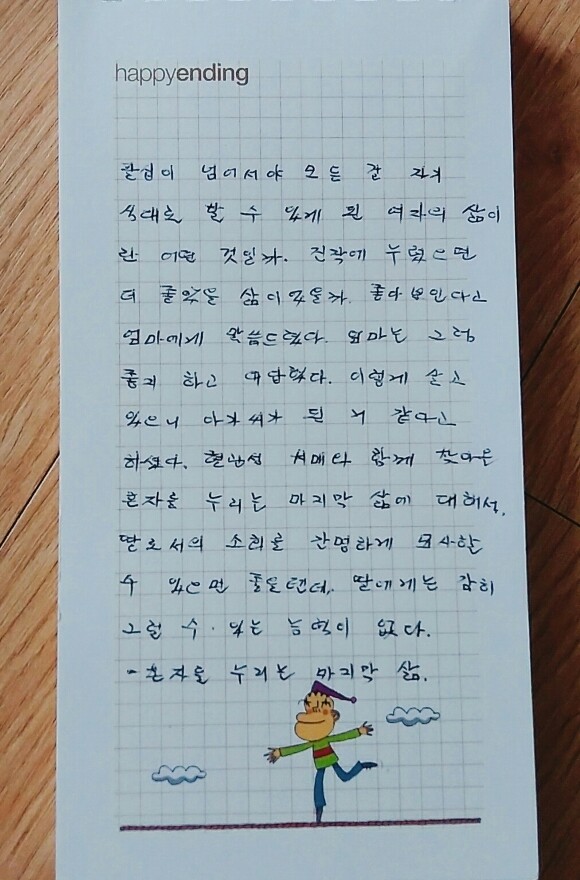 happyending
팔십이 넘어서야 모든 걸 자기
식대로 할 수 있게 된 여자의 삶이
란 어떤 것일까. 진작에 누렸으면
더 좋았을 삶이었을까. 좋아보인다고
엄마에게 말씀드렸다. 엄마는 그럼
좋지 하고 대답했다. 이렇게 살고
있으니 아가씨가 된 거 같다고
하셨다. 혈관성 치매와 함께 찾아온
혼자를 누리는 마지막 삶에 대해서,
딸로서의 소회를 간명하게 묘사할
수 있으면 좋을텐데. 딸에게는 감히
그럴 수 있는 능력이 없다.
- 혼자를 누리는 마지막 삶.